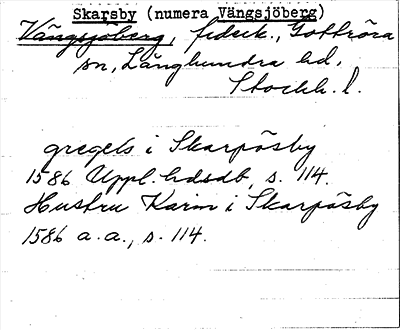 Skarsby (numera Vängsjöberg)
Vängsjöberg, fideik., Gottröra
sn, Långhundra hd,
Stockh. l.
gregels i Skarpåsby
1586 Uppl. hdsdb, s. 114.
Hustru Karin i Skarpåsby
1586 a. a., s. 114.